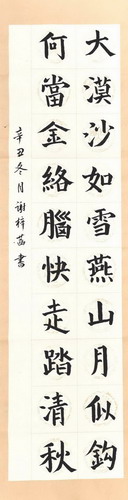 大漠沙如雪燕山月似鈎
何當金絡腦快走踏清秋
辛丑冬月謝梓菡書